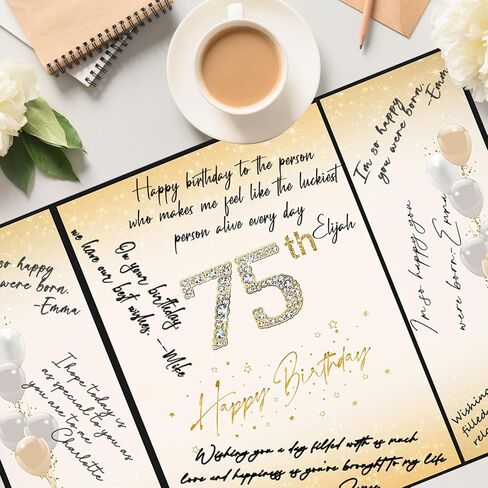 I'm so happy
you were born.
-Emma
I hope today is
as special to you as
you are to me
Charlotte
Happy birthday to the person
who makes me feel like the luckiest
person alive every day
-Elijah
On your birthday,
we have our best wishes. —Mike
75th
Happy Birthday
Wishing you a day filled with as much
love and happiness as you've brought to my life
I'm so happy
you were born.
-Emma
I'm so happy you
were born-Emma
Wishing
filled